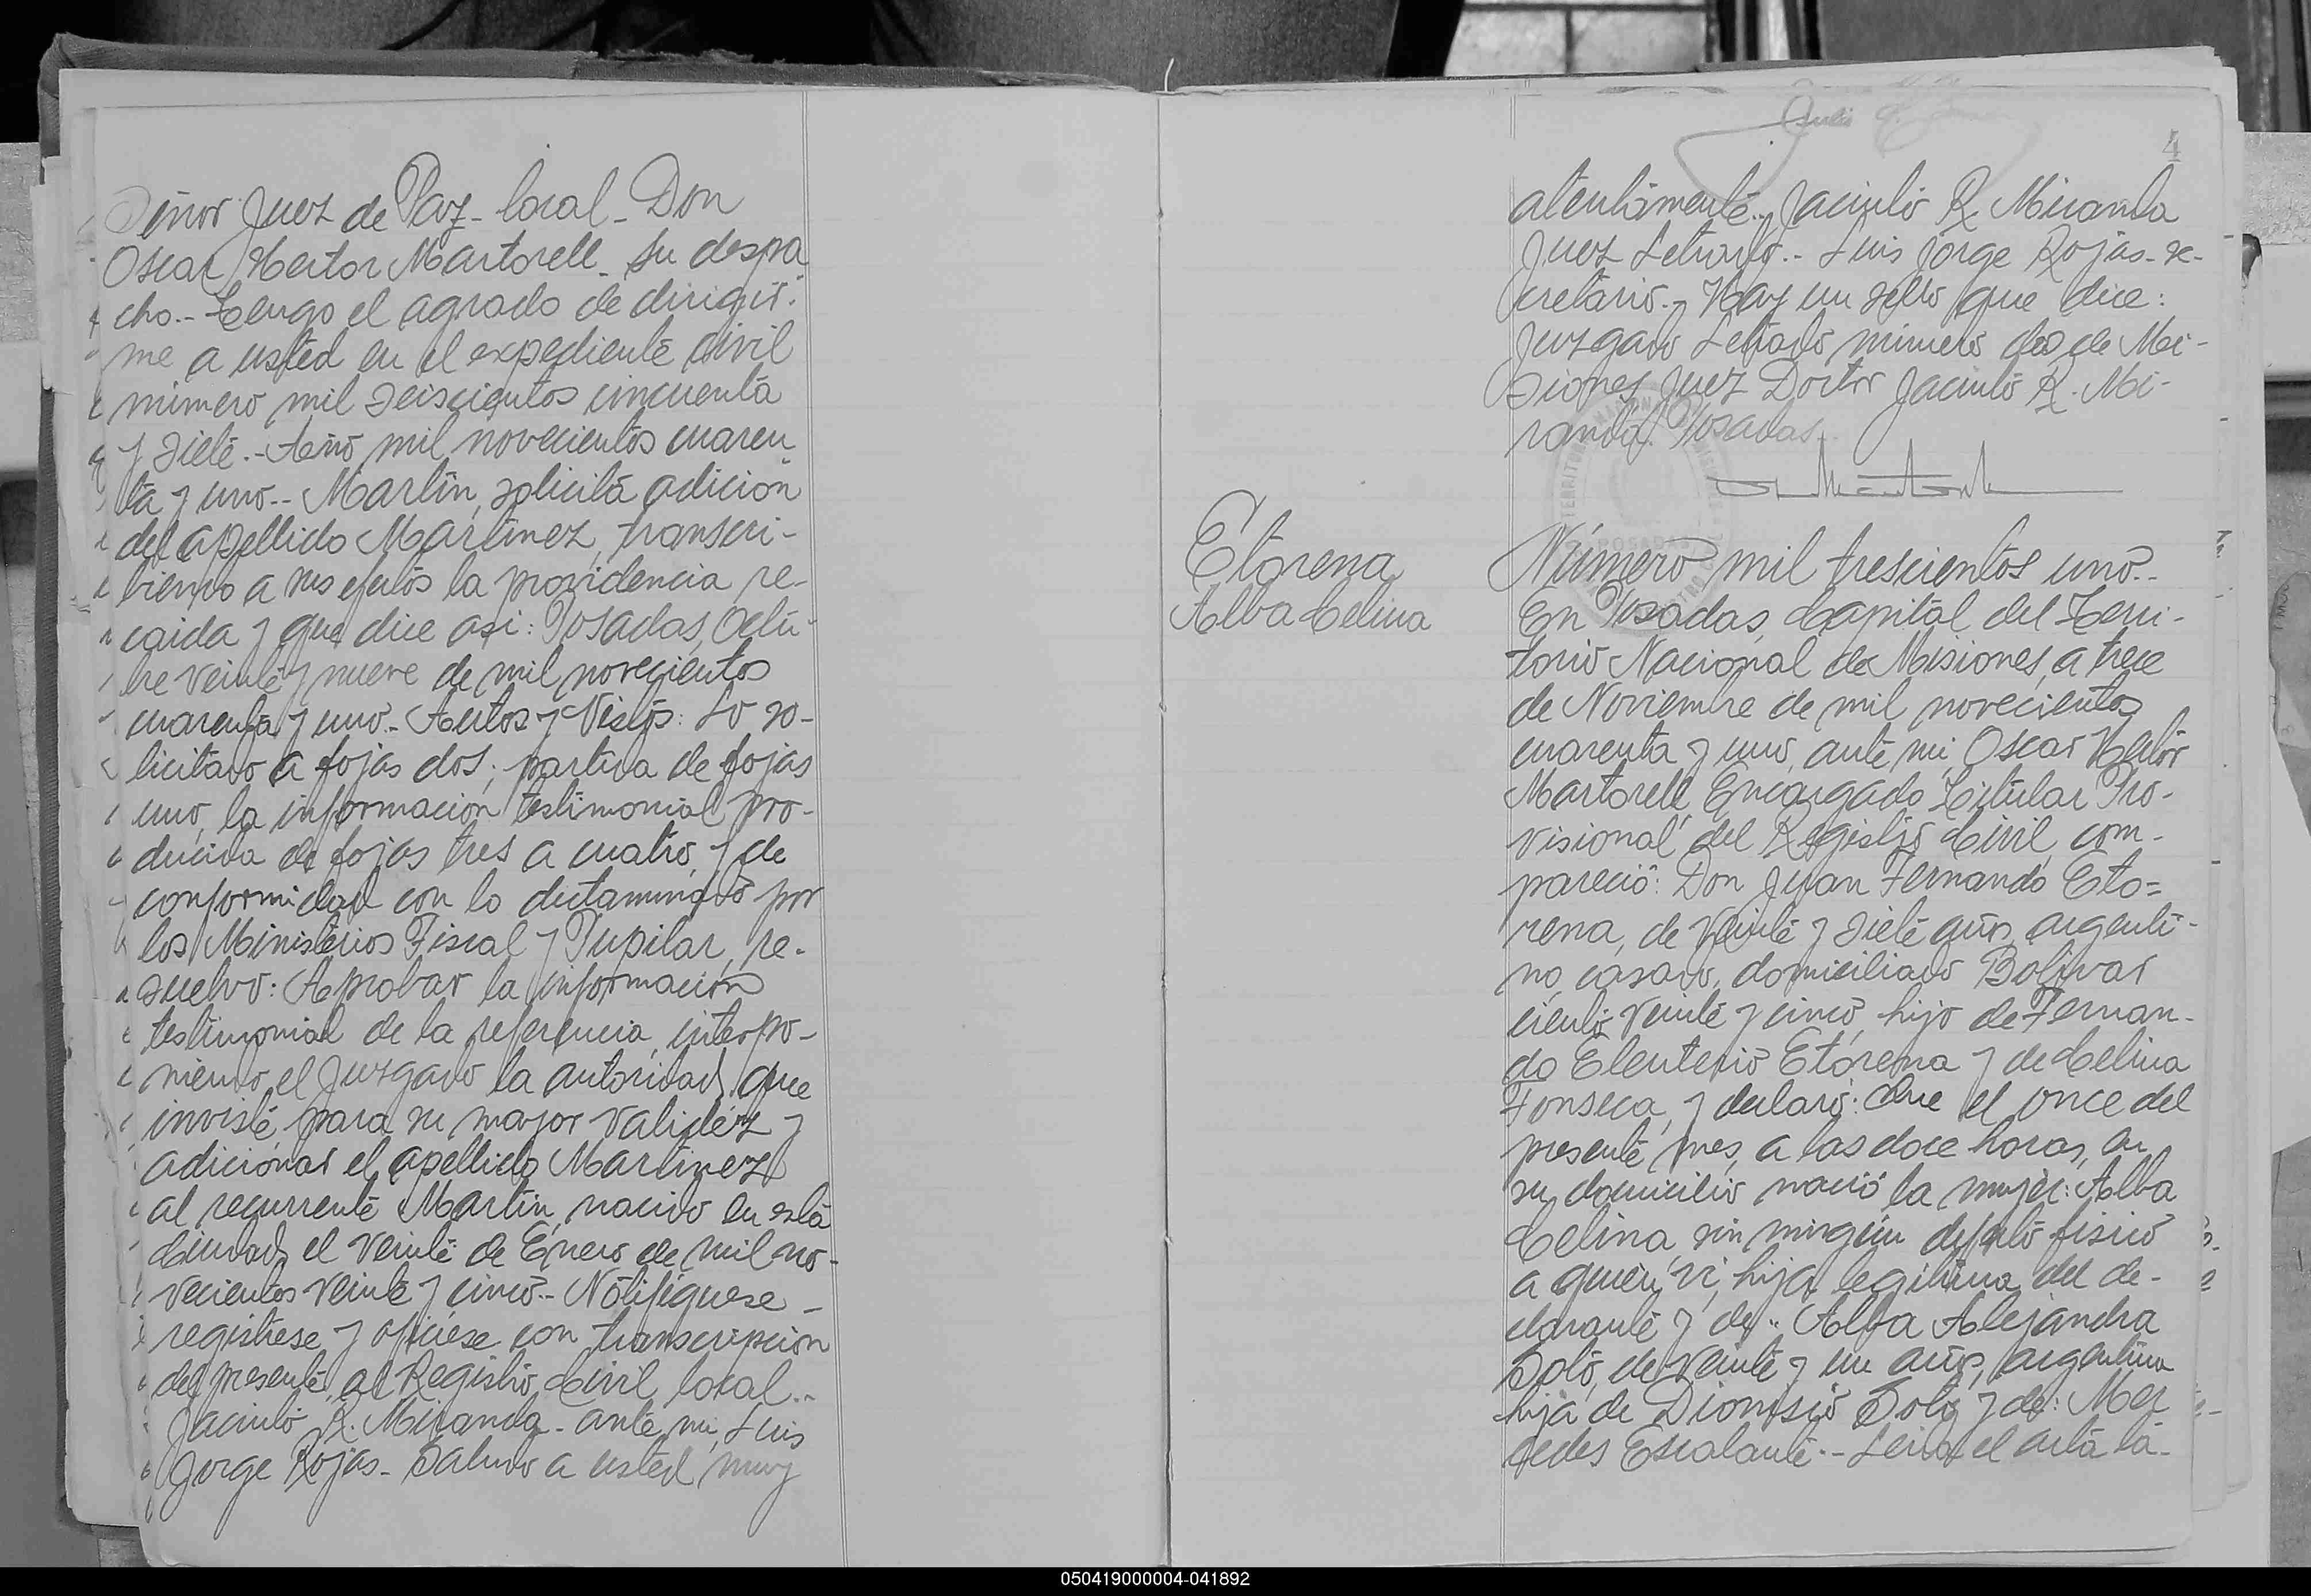 Señor Juez de Paz - local - Don
Oscar Hector Martorell - su despa
cho.- Tengo el agrado de dirigir-
me a usted en el expediente civil
número mil seiscientos cincuenta
y siete.- Año mil novecientos cuaren
ta y uno.- Martin, solicita adicion
del apellido Martinez, transcri-
biendo a sus efectos la providencia re-
caida y que dice asi: Posadas, Octu-
bre veinte y nueve de mil novecientos
cuarenta y uno.- Autos y Vistos: Lo so-
licitado a fojas dos; partida de fojas
uno, la informacion testimonial pro-
ducida de fojas tres a cuatro, y de
conformidad con lo dictaminado por
los Ministerios Fiscal y Pupilar, re-
suelvo: Aprobar la informacion
testimonial de la referencia, interpo-
niendo el Juzgado la autoridad que
inviste, para su mayor validéz y
adicionar el apellido Martinez
al recurrente Martin, nacido en esta
Ciudad, el veinte de Enero de mil no-
vecientos veinte y cinco.- Notifiquese -
registrese y oficiese con transcripcion
del presente, al Registro Civil local..
Jacinto R. Miranda - ante mi, Luis
Jorge Rojas - Saludo a usted muy
4
atentamente.. Jacinto R. Miranda
Juez Letrado.- Luis Jorge Rojas - se-
cretario.- Hay un sello que dice:
Juzgado Letrado número dos de Mi-
siones Juez Doctor Jacinto R. Mi-
randa. Posadas.
Etorena
Alba Celina
Número mil trescientos uno..
En Posadas, Capital del Terri-
torio Nacional de Misiones, a trece
de Noviembre de mil novecientos
cuarenta y uno, ante mi, Oscar Hector
Martorell Encargado Titular Pro-
visional del Registro Civil, com-
pareció: Don Juan Fernando Eto=
rena, de veinte y siete años, argenti-
no, casado, domiciliado Bolivar
ciento veinte y cinco, hijo de Fernan-
do Eleuterio Etorena y de Celina
Fonseca, y declaró: Que el once del
presente mes, a las doce horas, en
su domicilio nació la mujer: Alba
Celina, sin ningún defecto fisico
a quien vi, hija legitima del de-
clarante y de.. Alba Alejandra
Soto, de veinte y un años, argentina
hija de Dionisio Soto y de: Mer
cedes Escalante.- Leida el acta la-